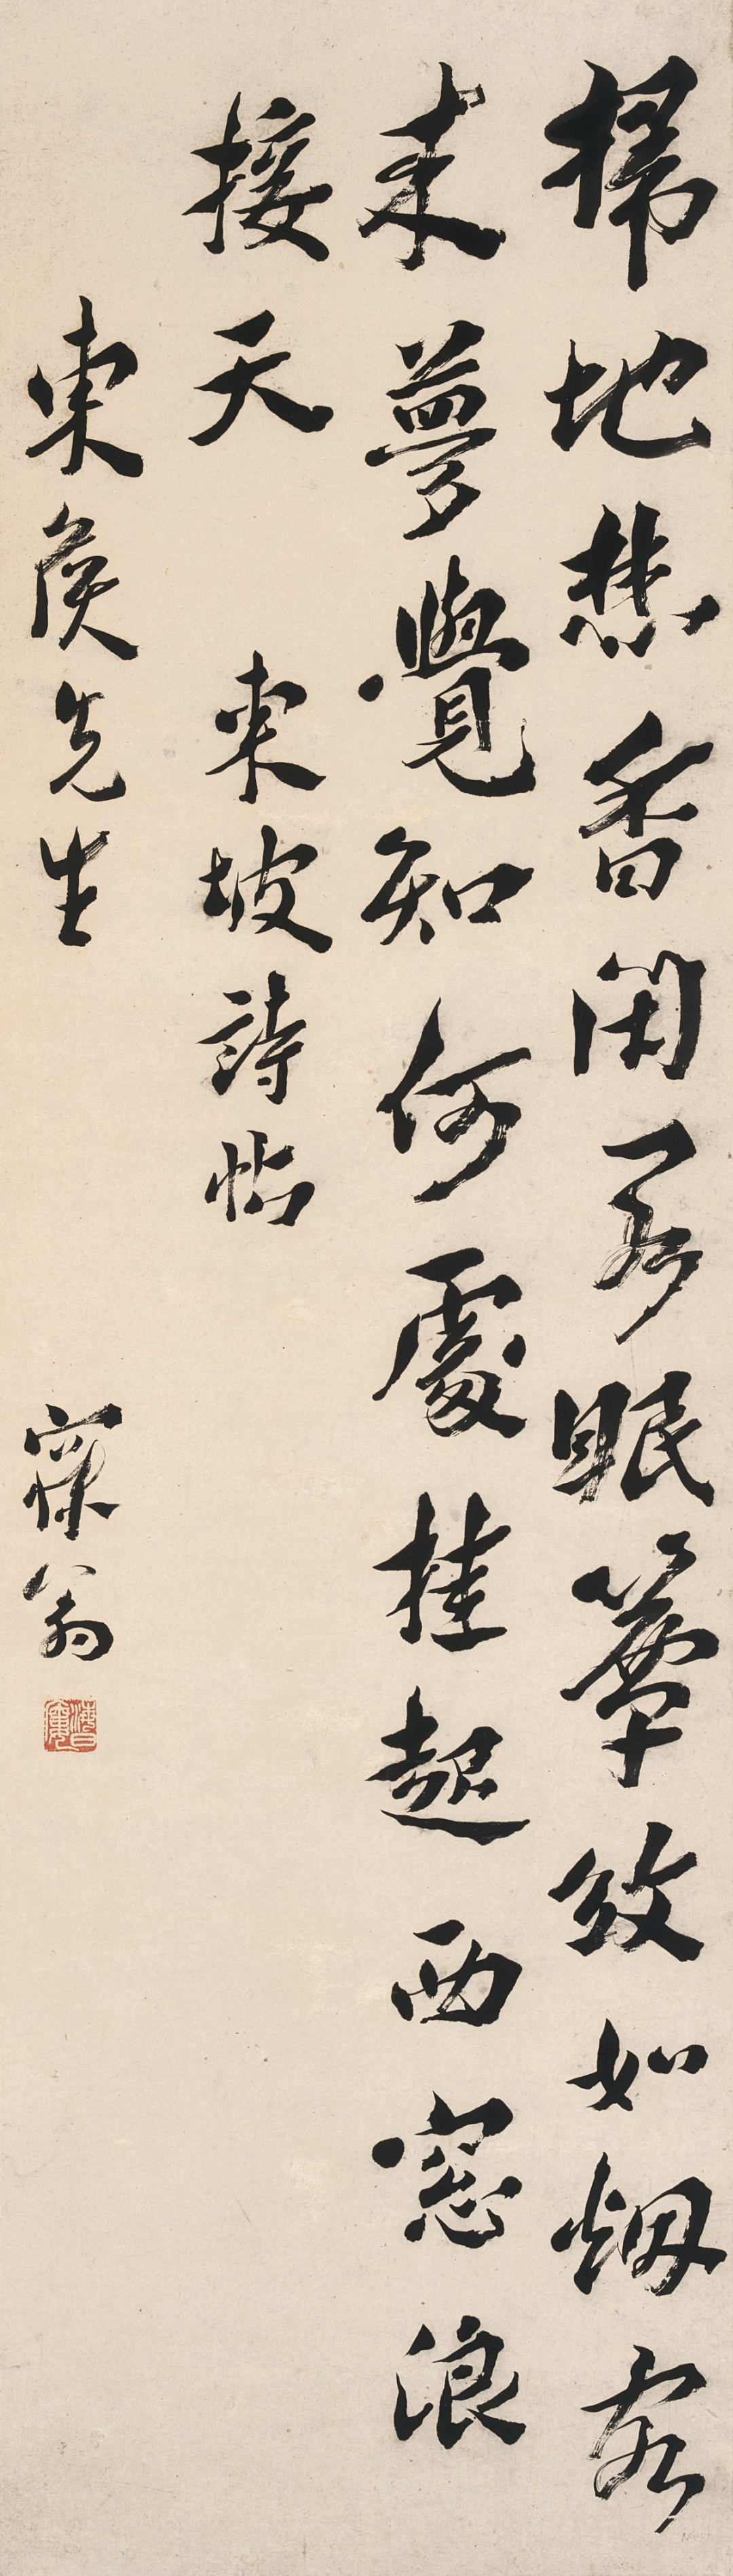 掃地焚香閉閣眠簟紋如烟客
來夢覺知何處挂起西窓浪
接天 東坡詩帖
東侯先生 寐翁
海日廔